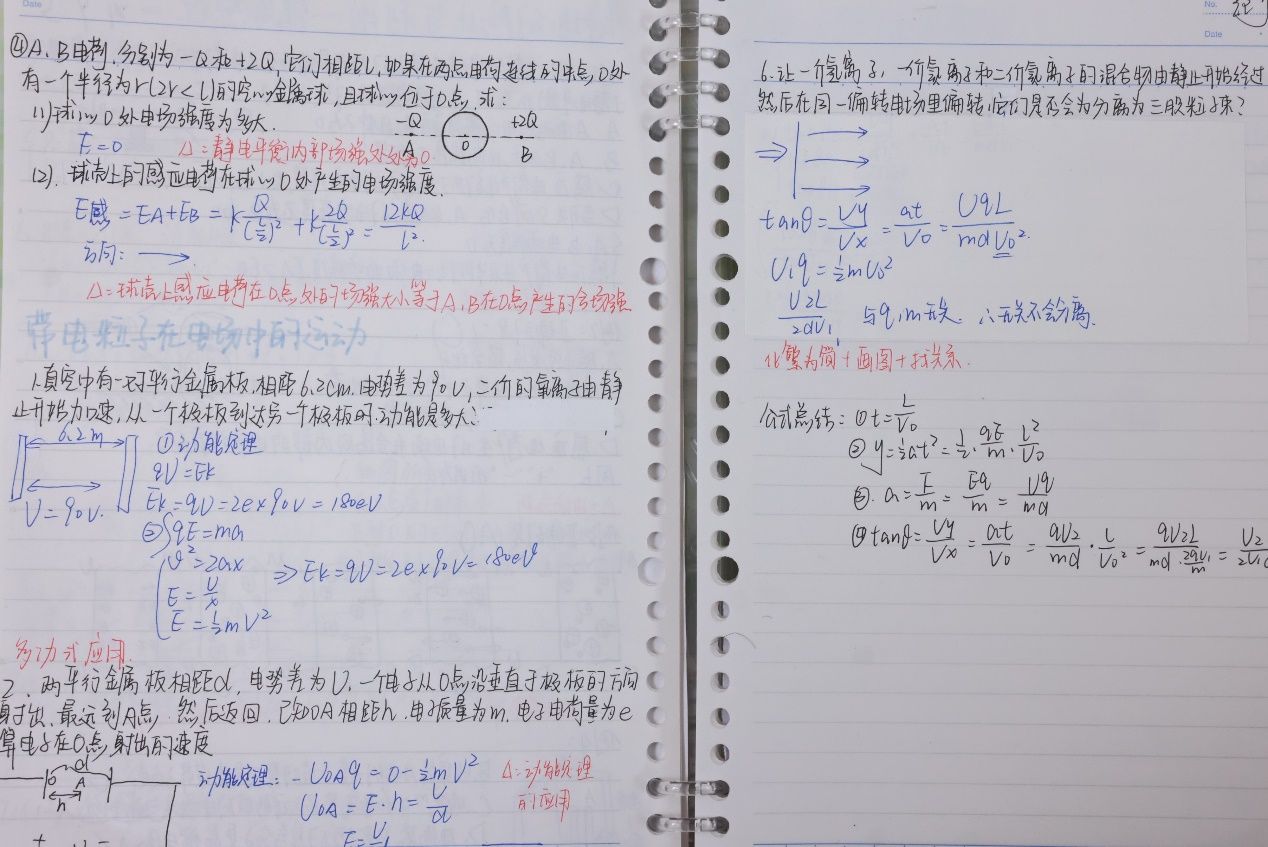 Date
④A、B电荷,分别为-Q和+2Q,它们相距L,如果在两点电荷连线的中点O处
有一个半径为r(2r<l)的空心金属球,且球心位于O点,求:
(1)球心O处电场强度为多大.
-Q +2Q
A O B
E=0
△=静电平衡内部场强处处为0
(2).球壳上的感应电荷在球心O处产生的电场强度.
E感=EA+EB=k Q/(L/2)²+k 2Q/(L/2)²=12kQ/L².
方向: →.
△=球壳上感应电荷在O点处的场强大小等于A、B在O点产生的合场强
带电粒子在电场中的运动
1.真空中有一对平行金属板,相距6.2cm.电势差为90V,二价的氧离子由静
止开始加速,从一个极板到达另一个极板时,动能是多大?
6.2m
①动能定理
qU=Ek
Ek=qU=2e×90V=180eV
U=90V.
②qE=ma
v²=2ax ⇒Ek=qU=2e×90V=180eV
E=U/x
E=½mv²
多功式应用.
2、两平行金属板相距d,电势差为U.一个电子从O点沿垂直于极板的方向
射出,最远到A点,然后返回.已知OA相距h.电子质量为m.电子电荷量为e
算电子在O点射出的速度
d
O A
h
动能定理:-UOAq=0-½mv²
△=动能定理
的应用
UOA=E·h=U/d
E=U/d
No.
Date
6.让一价氢离子,一价氦离子和二价氦离子的混合物由静止开始经过
然后在同一偏转电场里偏转,它们是否会为分离为三股粒子来?
⇒
tanθ=Vy/Vx=at/V0=UqL/mdV0².
U₁q=½mV0²
U2L/2dU₁ 与q,m无关. ∴无关不会分离.
化繁为简+画图+找关系.
公式总结:①t=L/V0
②y=½at²=½·qE/m·L²/V0
③.a=F/m=Eq/m=Uq/md
④tanθ=Vy/Vx=at/V0=qU2/md·L/V0²=qU2L/md·2qU₁/m=U2/2U₁d